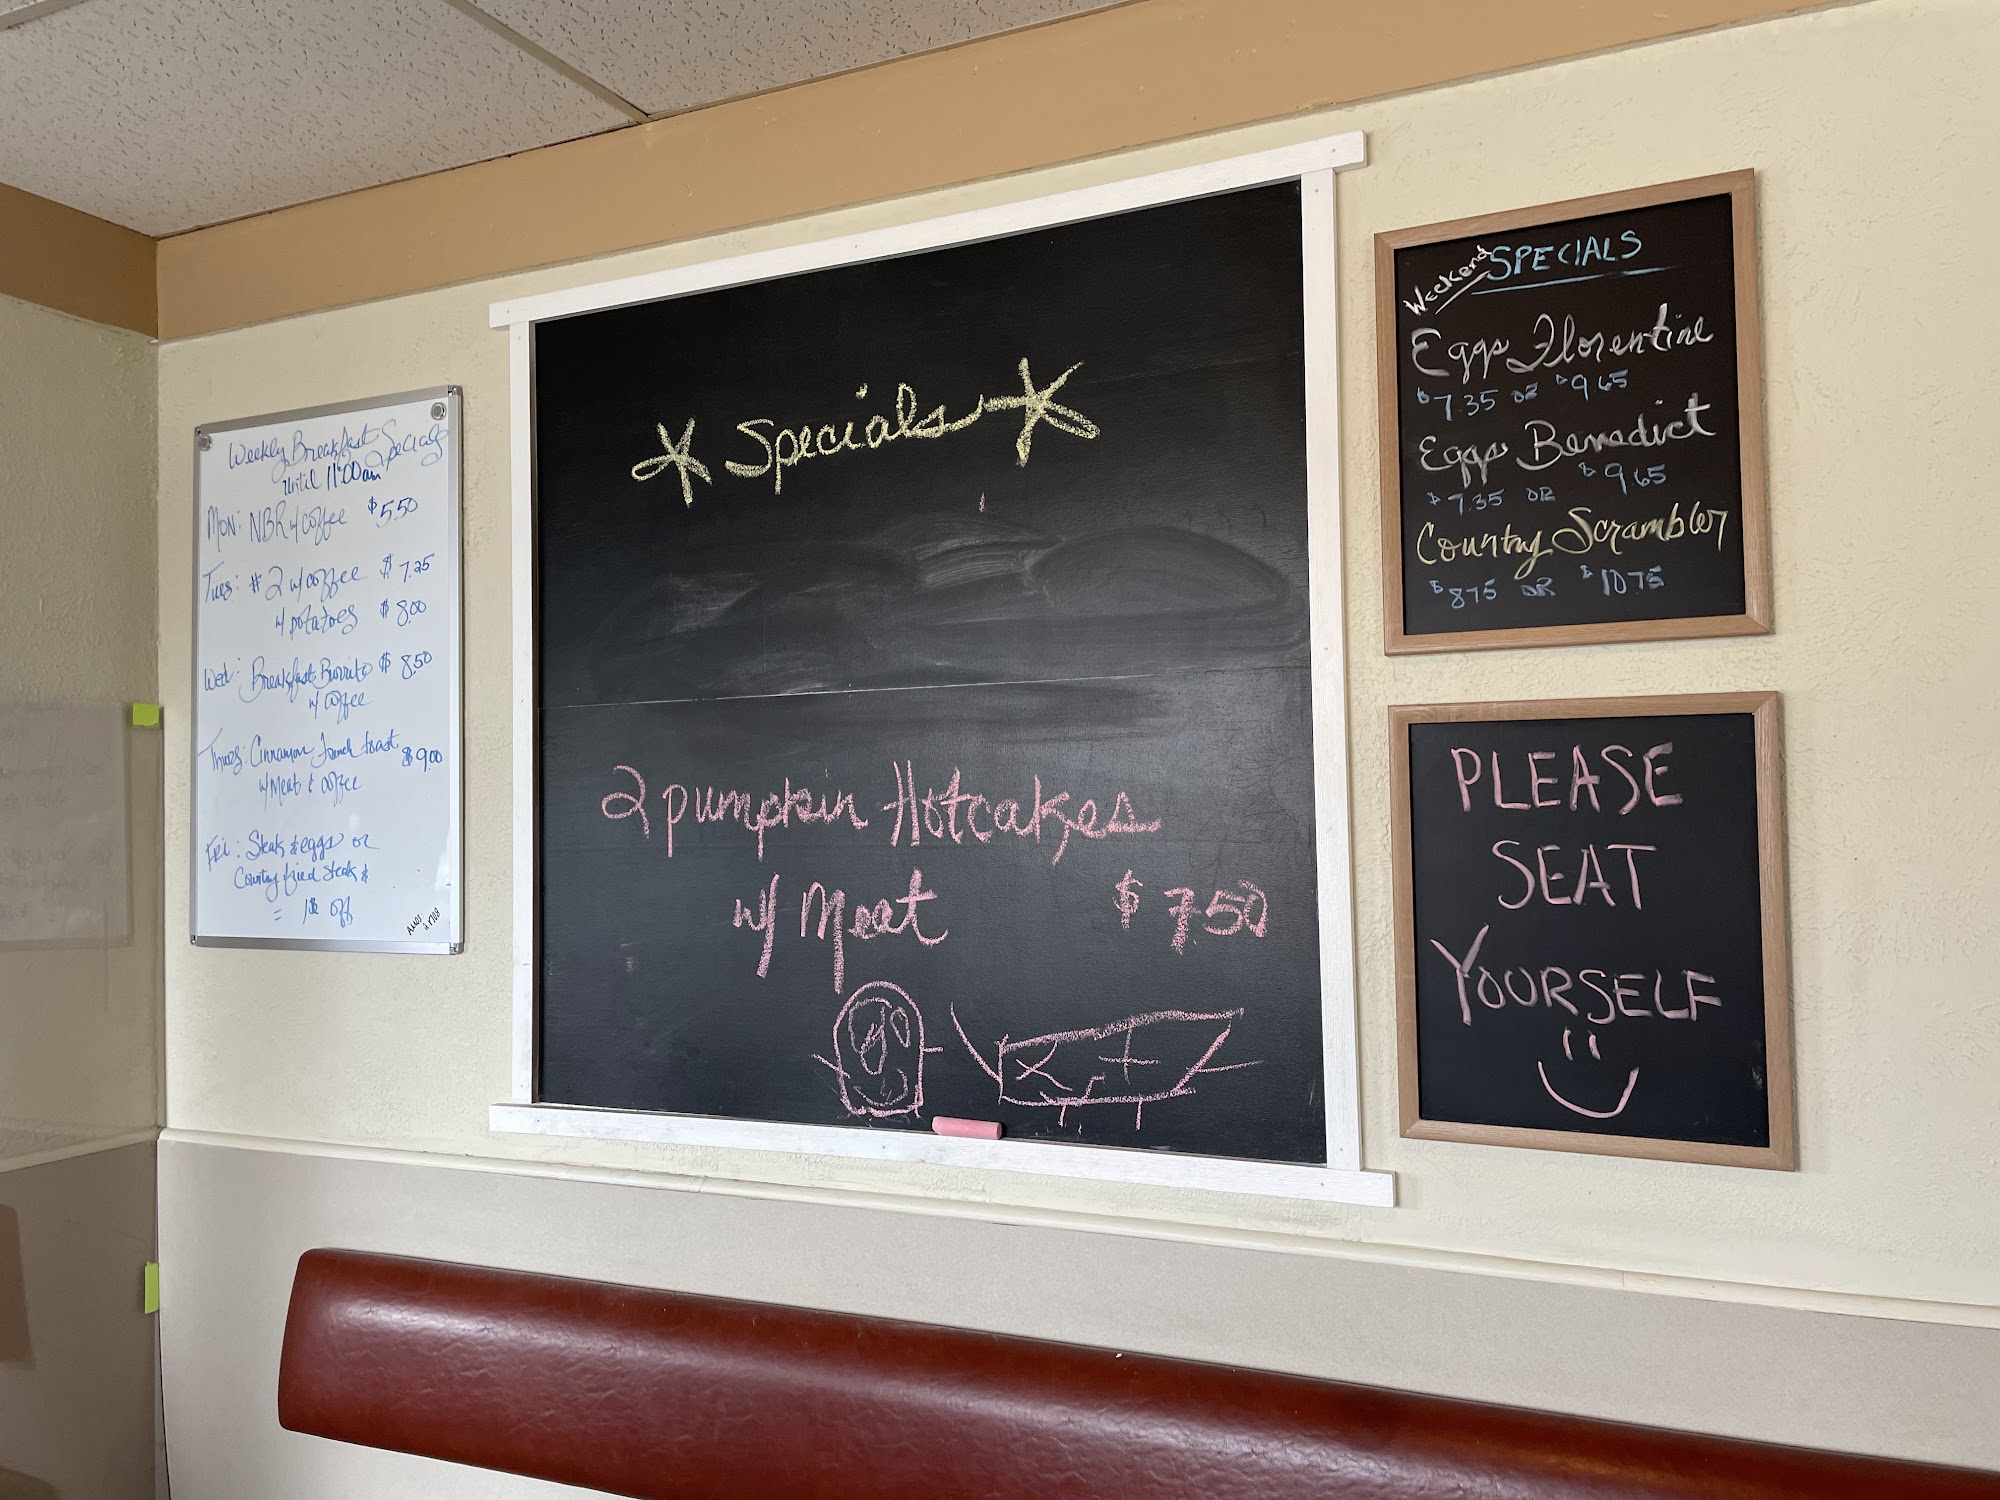 Weekly Breakfast Specials
Until 11:00am
Mon: NBR w/ coffee $5.50
Tues: #2 w/ coffee $7.25
w/ potatoes $8.00
Wed: Breakfast Burrito $8.50
w/ coffee
Thurs: Cinnamon French toast $9.00
w/ Meat & coffee
Fri: Steak & eggs or
Country fried steak &
= off
* Specials *
2 pumpkin Hotcakes
w/ Meat $7.50
Weekend SPECIALS
Eggs Florentine
$7.35 OR $9.65
Eggs Benedict
$7.35 OR $9.65
Country Scrambler
$8.75 OR $10.75
PLEASE
SEAT
YOURSELF